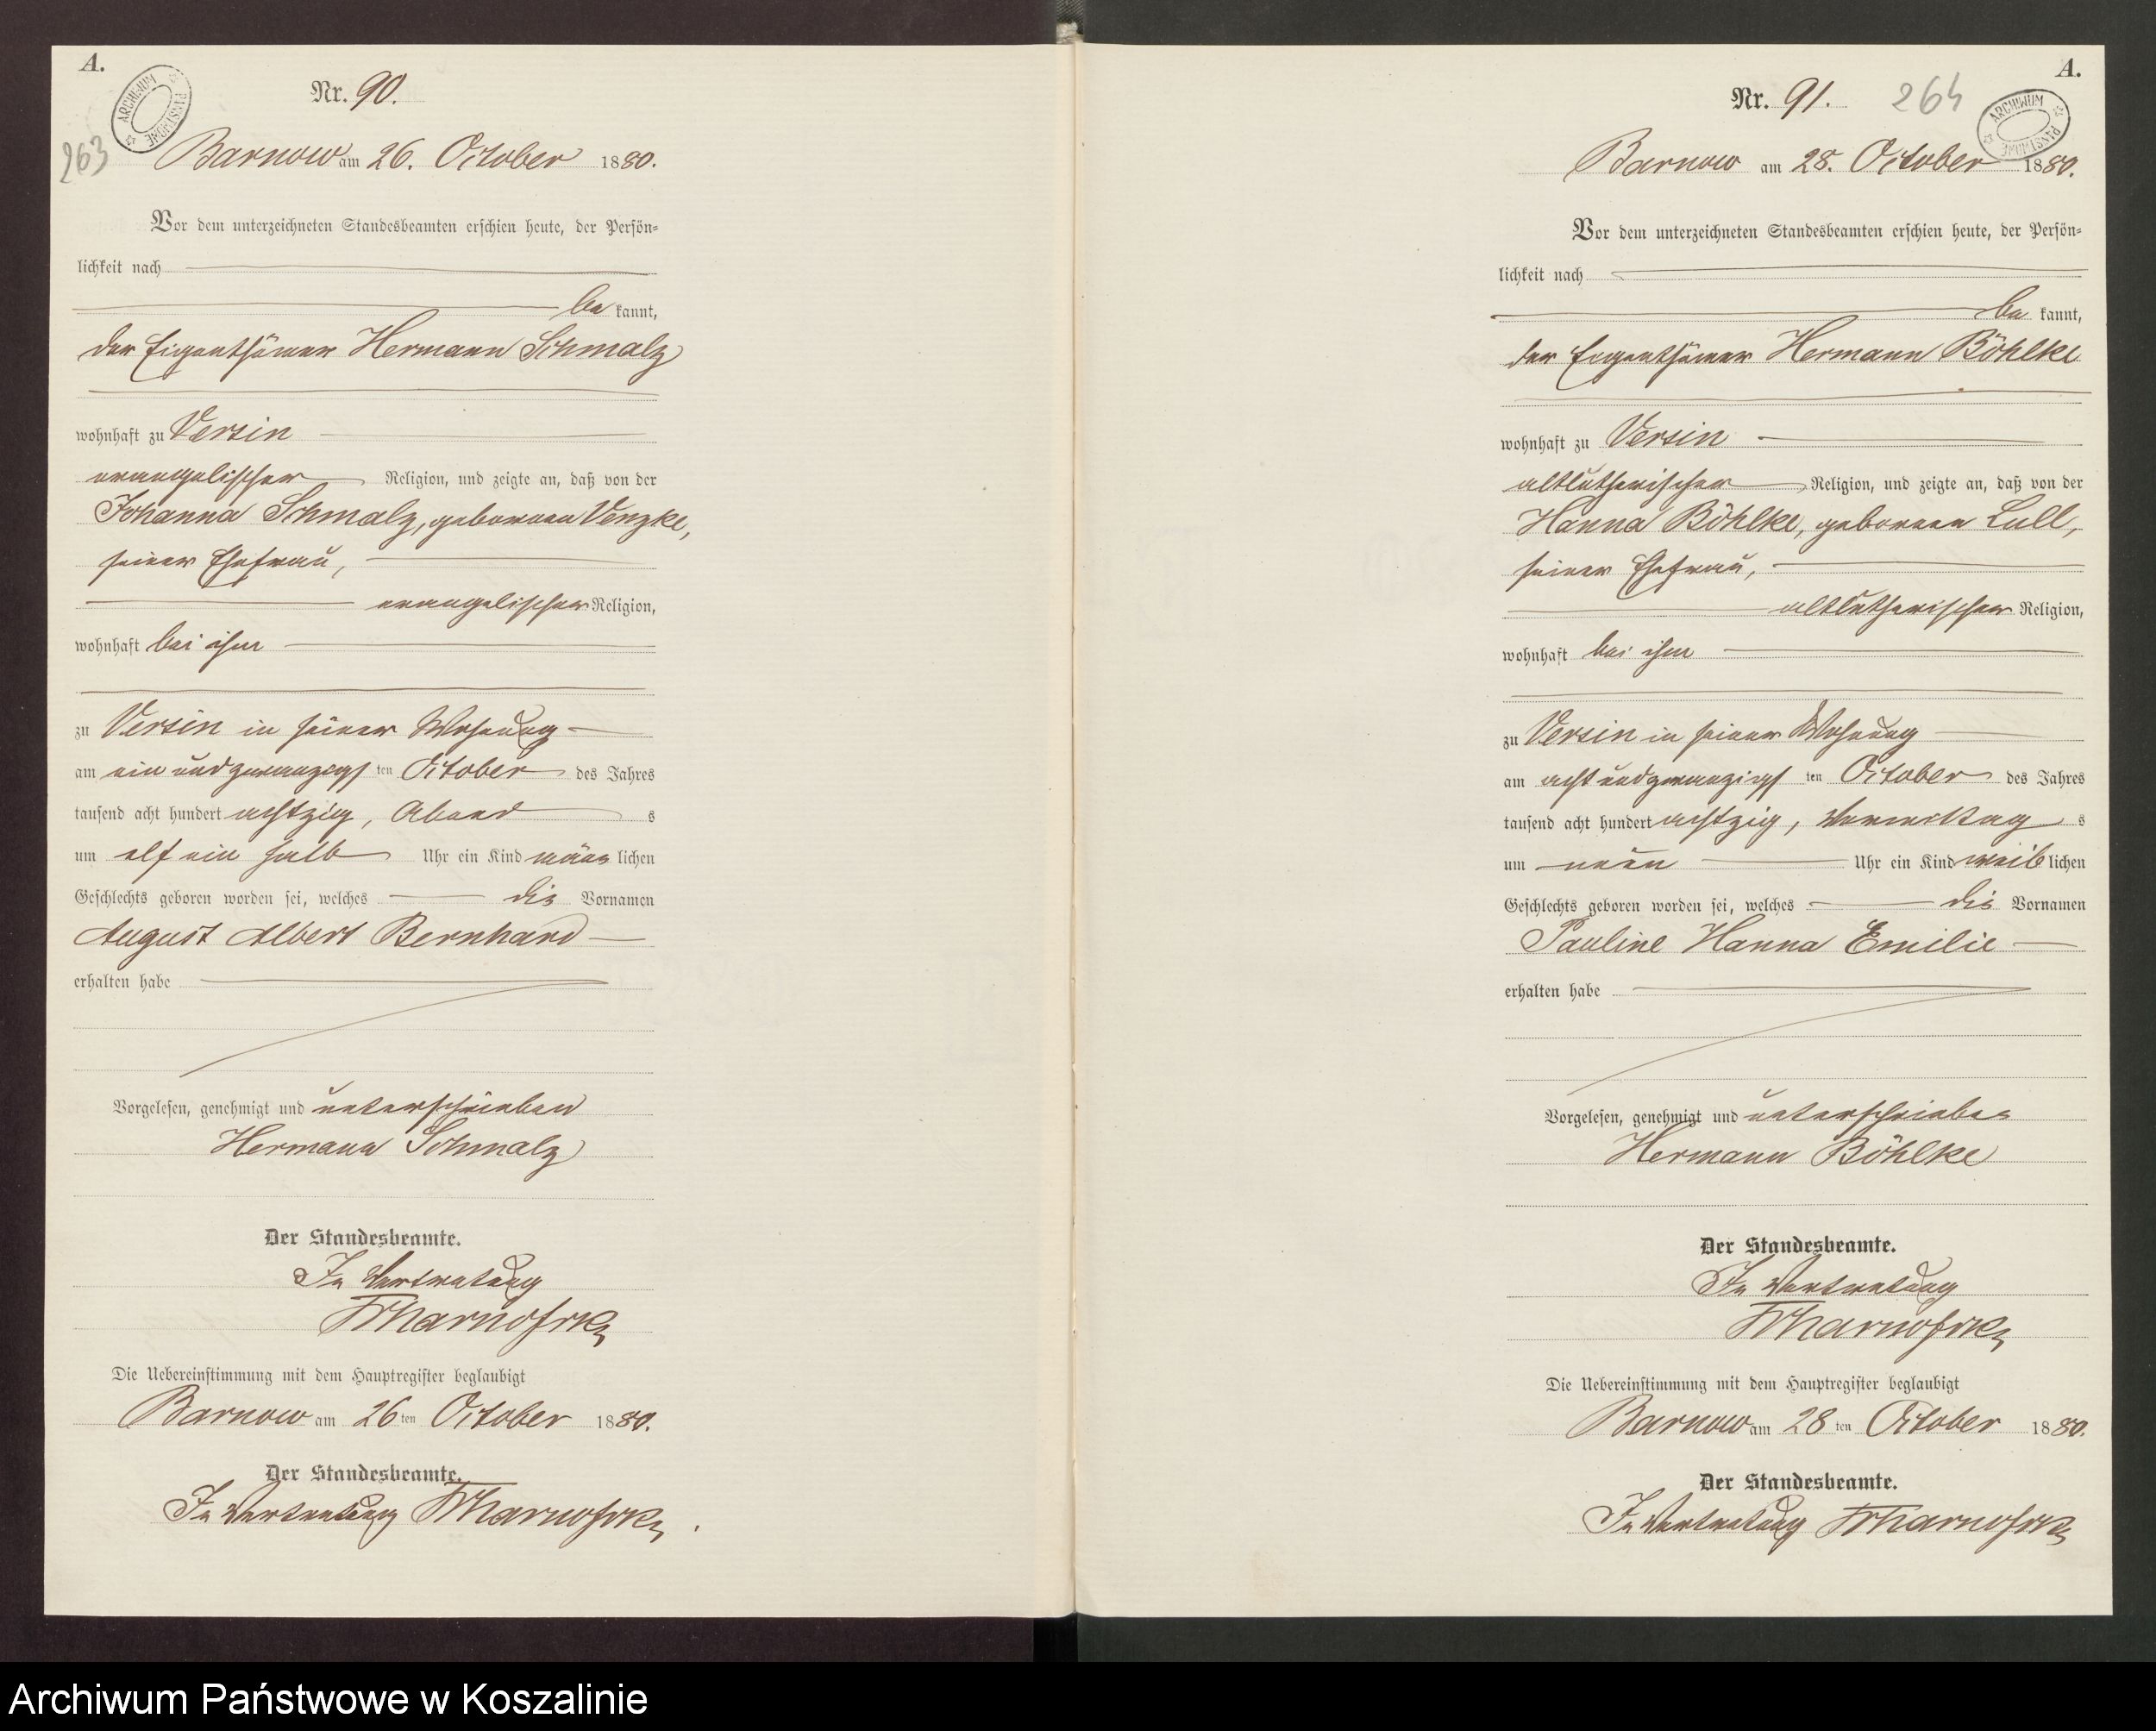 A.
ARCHIWUM PAŃSTWOWE
Nr. 90.
263
Barnow am 26. October 1880.
Vor dem unterzeichneten Standesbeamten erschien heute, der Persön=
lichkeit nach
be kannt,
der Eigenthümer Hermann Schmalz
wohnhaft zu Versin
evangelischer Religion, und zeigte an, daß von der
Johanna Schmalz, geborenen Venzke,
seiner Ehefrau,
evangelischer Religion,
wohnhaft bei ihm
zu Versin in seiner Wohnung
am ein und zwanzigs ten October des Jahres
tausend acht hundert achtzig, Abend s
um elf ein halb Uhr ein Kind männ lichen
Geschlechts geboren worden sei, welches die Vornamen
August Albert Bernhard
erhalten habe
Vorgelesen, genehmigt und unterschrieben
Hermann Schmalz
Der Standesbeamte.
In Vertretung
Die Uebereinstimmung mit dem Hauptregister beglaubigt
Barnow am 26 ten October 1880.
Der Standesbeamte.
In Vertretung
A.
Nr. 91.
264
ARCHIWUM PAŃSTWOWE
Barnow am 28. October 1880.
Vor dem unterzeichneten Standesbeamten erschien heute, der Persön=
lichkeit nach
be kannt,
der Eigenthümer Hermann Böhlke
wohnhaft zu Versin
altlutherischer Religion, und zeigte an, daß von der
Hanna Böhlke, geborenen Lull,
seiner Ehefrau,
altlutherischer Religion,
wohnhaft bei ihm
zu Versin in seiner Wohnung
am acht und zwanzigs ten October des Jahres
tausend acht hundert achtzig, Vormittag s
um neun Uhr ein Kind weib lichen
Geschlechts geboren worden sei, welches die Vornamen
Pauline Hanna Emilie
erhalten habe
Vorgelesen, genehmigt und unterschrieben
Hermann Böhlke
Der Standesbeamte.
In Vertretung
Die Uebereinstimmung mit dem Hauptregister beglaubigt
Barnow am 28 ten October 1880.
Der Standesbeamte.
In Vertretung
Archiwum Państwowe w Koszalinie